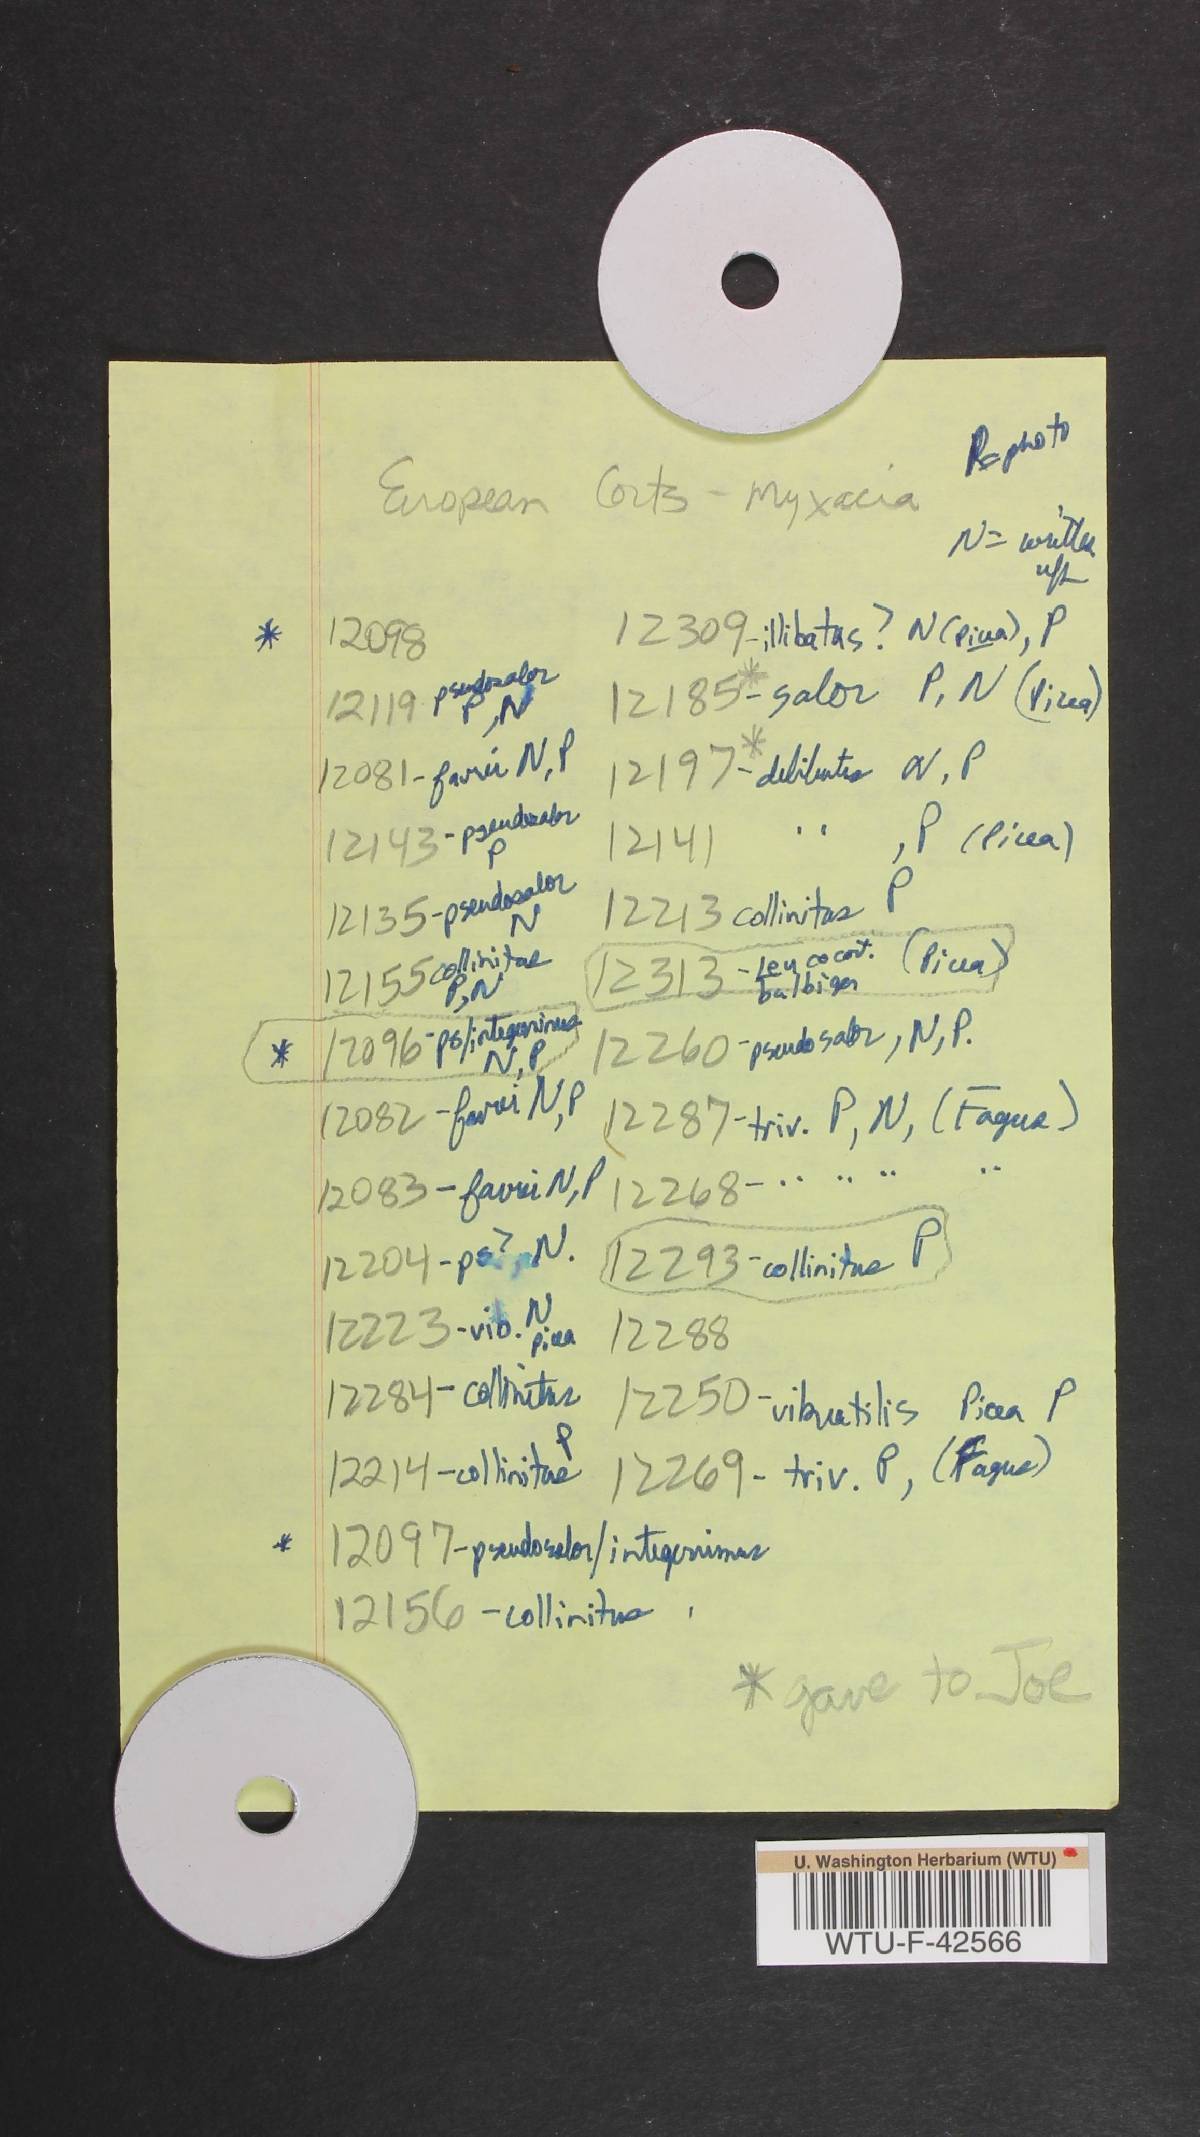 P=photo
European Corts - Myxacia
N= written
up
* 12098
12119 pseudosalor
P, N
12081- favrei N, P
12143- pseudosalor
P
12135-pseudosalor
N
12155 collinitus
P, N
* 12096-ps/integerrimus
N, P
12082 -favrei N, P
12083 - favrei N, P
12204 - ps?, N.
12223 -vib. N
picea
12284 - collinitus
12214 -collinitus P
* 12097-pseudosalor/integerrimus
12156 -collinitus
12309-illibatus? N (Picea), P
12185*- salor P, N (Picea)
12197*- delibutus N, P
12141 " , P (Picea)
12213 collinitus P
12313 -Leucocort. (Picea)
bulbiger
12260 -pseudosalor, N, P.
12287-triv. P, N, (Fagus)
12268- " " " "
12293-collinitus P
12288
12250-vibratilis Picea P
12269- triv. P, (Fagus)
* gave to Joe
U. Washington Herbarium (WTU)
WTU-F-42566